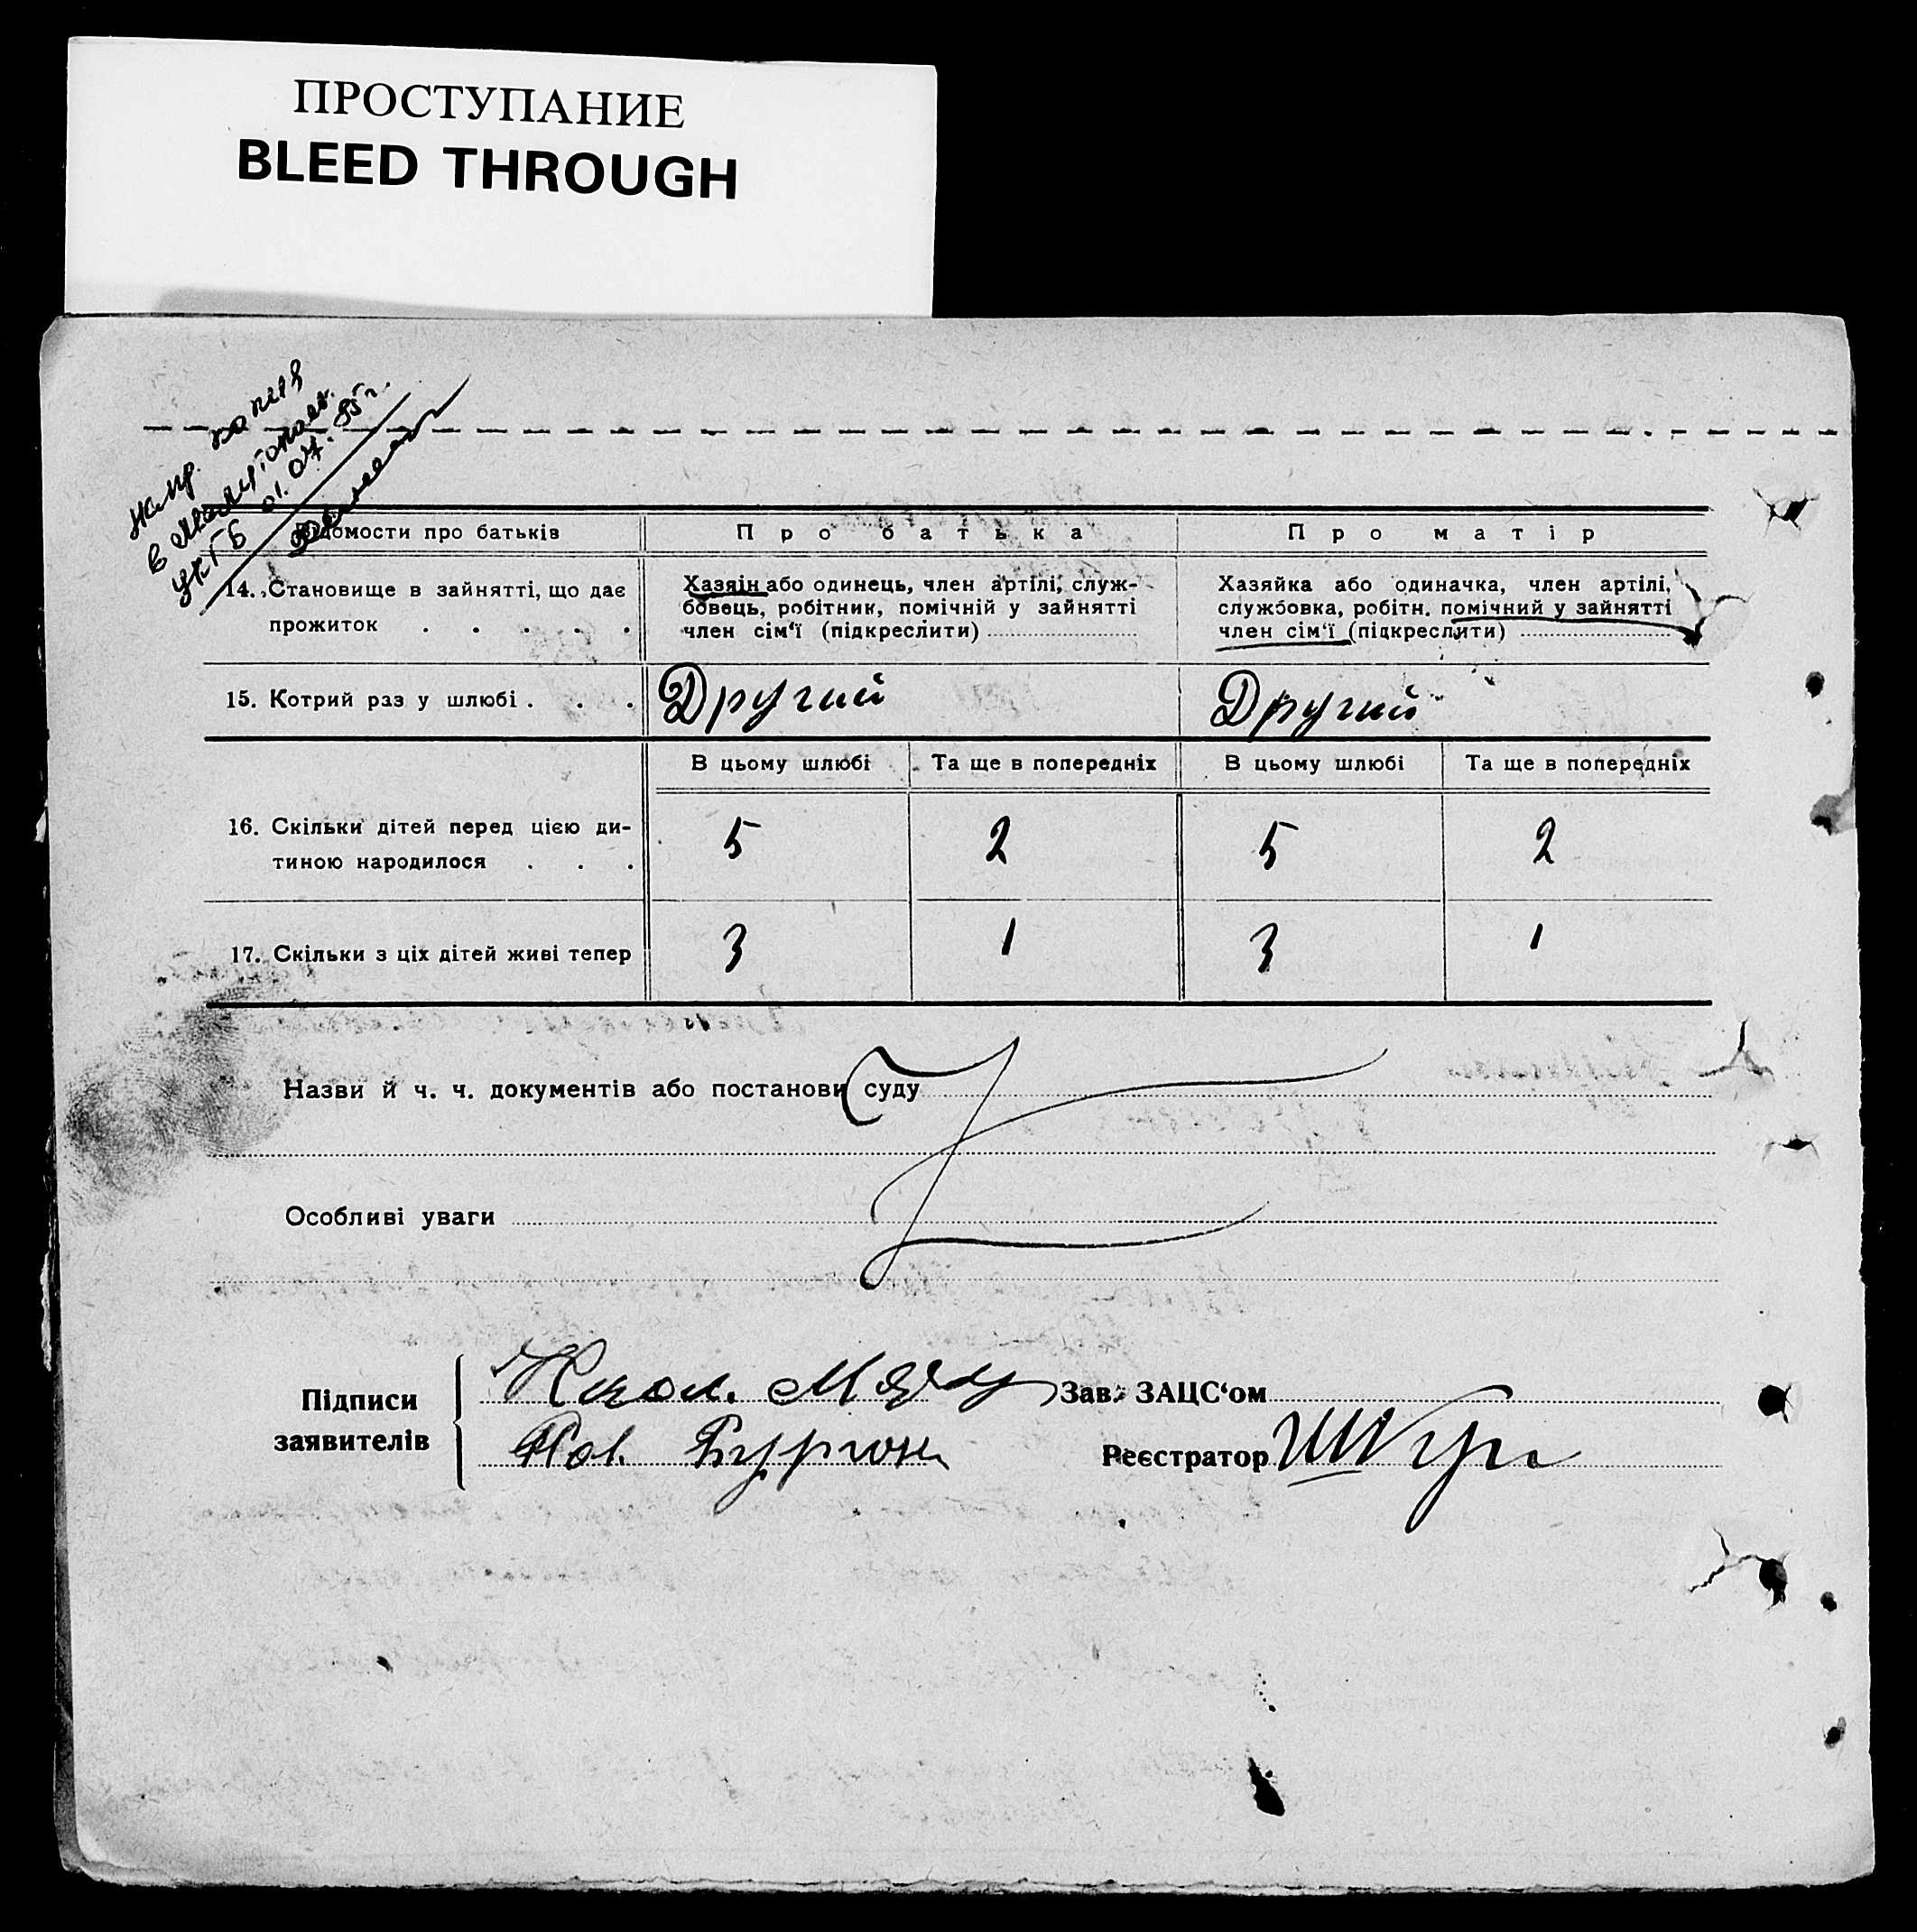 ПРОСТУПАНИЕ
BLEED THROUGH
копия
в
УКГБ 01.07.85г.
Відомости про батьків
Про батька
Про матір
14. Становище в зайнятті, що дає
прожиток . . . . .
Хазяін або одинець, член артілі, служ-
бовець, робітник, помічній у зайнятті
член сім‘ї (підкреслити)
Хазяйка або одиначка, член артілі,
службовка, робітн. помічний у зайнятті
член сім‘ї (підкреслити)
15. Котрий раз у шлюбі . . .
Другий
Другий
В цьому шлюбі
Та ще в попередніх
В цьому шлюбі
Та ще в попередніх
16. Скільки дітей перед цією ди-
тиною народилося . . .
5
2
5
2
17. Скільки з ціх дітей живі тепер
3
1
3
1
Назви й ч. ч. документів або постанови суду
Особливі уваги
Підписи
заявителів
Зав. ЗАЦС‘ом
Реєстратор